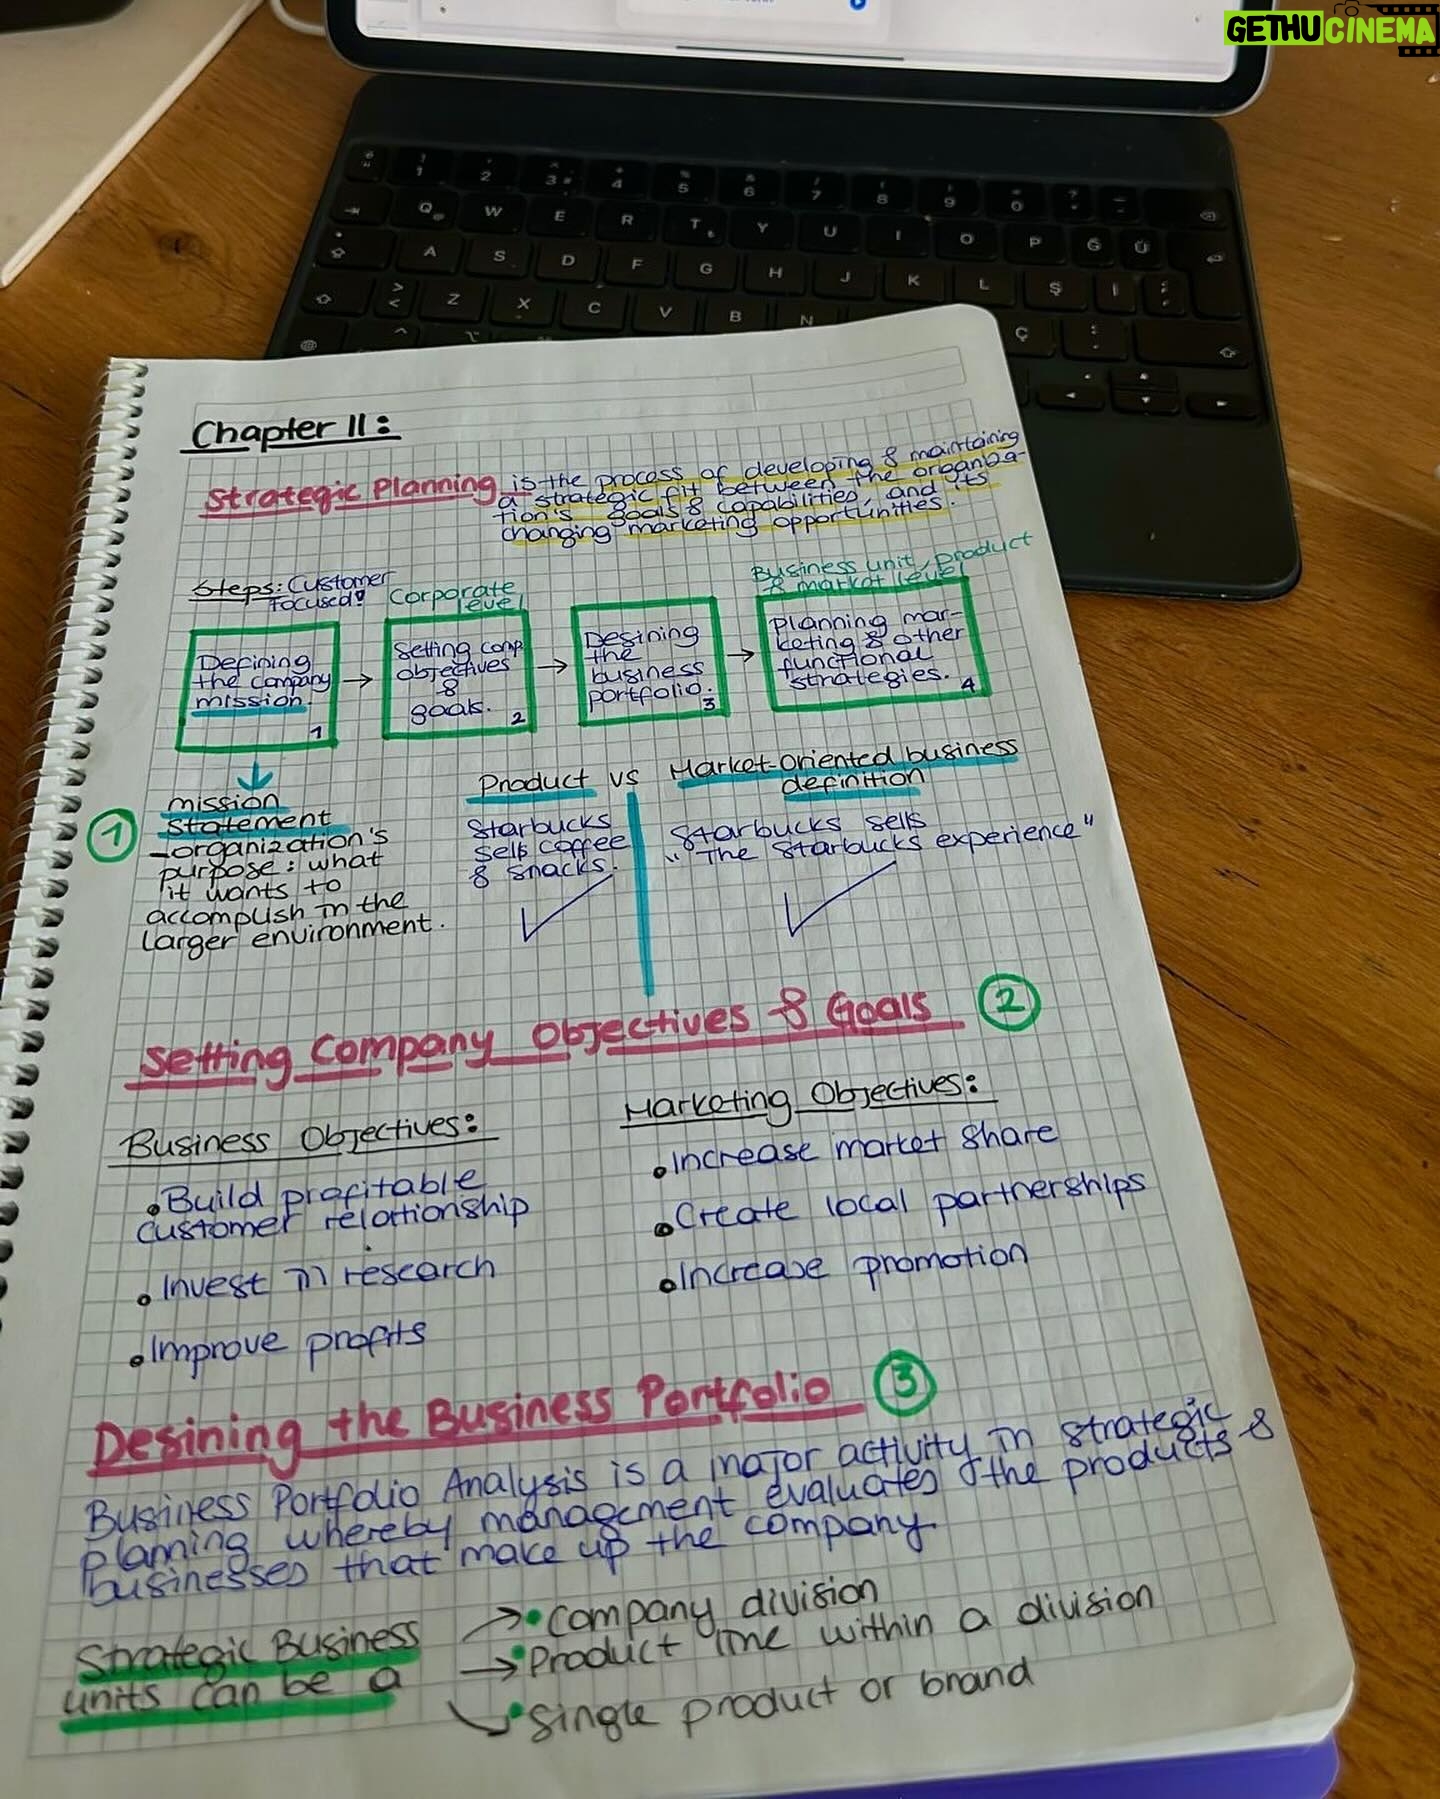 GETHUCINEMA
Chapter II:
Strategic Planning is the process of developing & maintaining
a strategic fit between the organiza-
tion's goals & capabilities, and its
changing marketing opportunities.
Steps: Customer
Focused!
Corporate
level
Business unit, product
& market level
Defining
the company
mission.
1
Setting comp
objectives
&
goals.
2
Desining
the
business
portfolio.
3
Planning mar-
keting & other
functional
strategies.
4
1
mission
statement
-organization's
purpose: what
it wants to
accomplish in the
larger environment.
Product vs Market-Oriented business
definition
Starbucks
sells coffee
& snacks.
Starbucks sells
"The Starbucks experience"
Setting Company Objectives & Goals 2
Business Objectives:
•Build profitable
customer relationship
•Invest in research
•Improve profits
Marketing Objectives:
•Increase market share
•Create local partnerships
•Increase promotion
Desining the Business Portfolio 3
Business Portfolio Analysis is a major activity in strategic
planning whereby management evaluates the products &
businesses that make up the company.
Strategic Business
units can be a
•Company division
•Product line within a division
•Single product or brand